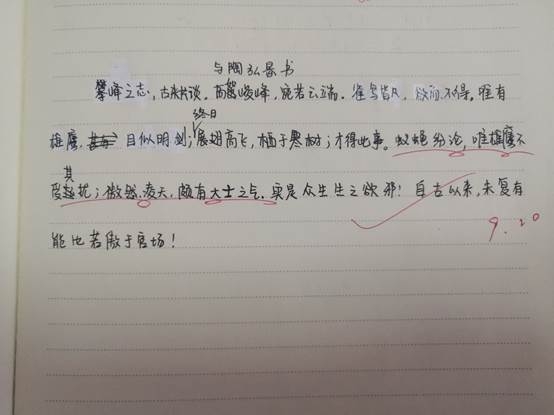 与陶弘景书
攀峰之志,古来共谈。高峻峰,宛若云端。雀鸟皆凡,欲而不得。唯有
雄鹰,目似明剑;终日展翅高飞,栖于寒树;才得此事。蚊蝇纷论,唯雄鹰不
受其扰;傲然凌天,颇有大士之气。实是众生生之欲邪!自古以来,未复有
能比若傲于官场!
9.20